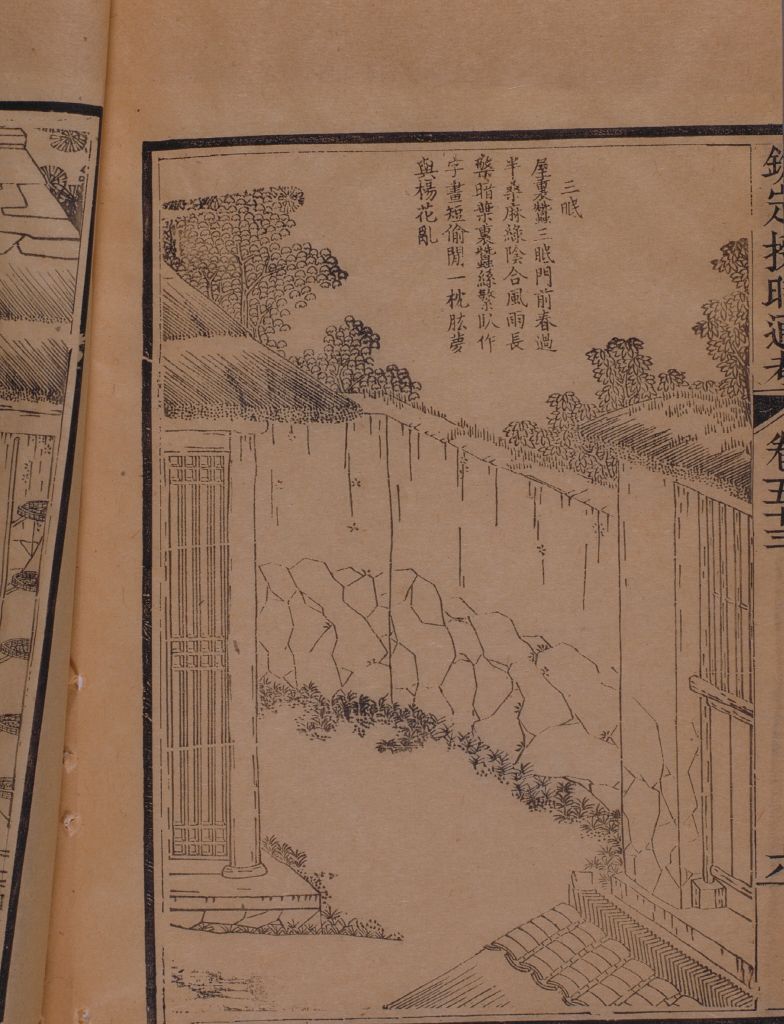 欽定授時通考
卷五十三
三眠
屋裏蠶三眠門前春過
半桑麻綠陰合風雨長
檠暗葉裏蠶絲繁臥作
字畫短偷閒一枕肱夢
與楊花亂